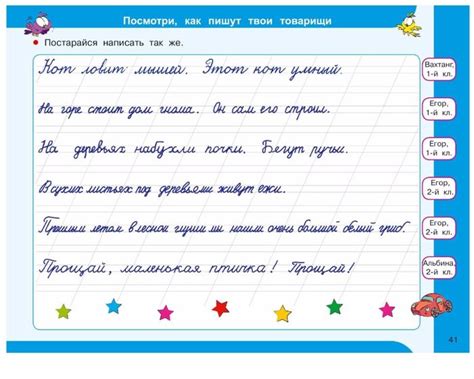 Посмотри, как пишут твои товарищи
Постарайся написать так же.
Кот ловит мышей. Этот кот умный.
Вахтанг, 1-й кл.
На горе стоит дом гнома. Он сам его строил.
Егор, 1-й кл.
На деревьях набухли почки. Бегут ручьи.
Егор, 1-й кл.
В сухих листьях под деревьями живут ежи.
Егор, 2-й кл.
Прошлым летом в лесной глуши мы нашли очень большой белый гриб.
Егор, 2-й кл.
Прощай, маленькая птичка! Прощай!
Альбина, 2-й кл.
41